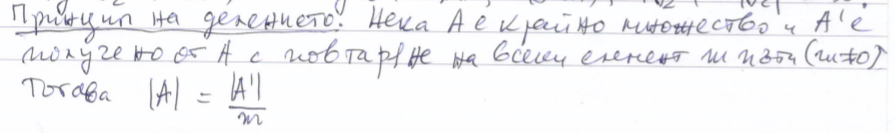 Принцип на делението. Нека A е крайно множество и A' е
получено от A с повтаряне на всеки елемент m пъти (m≠0)
Тогава |A| = |A'|/m